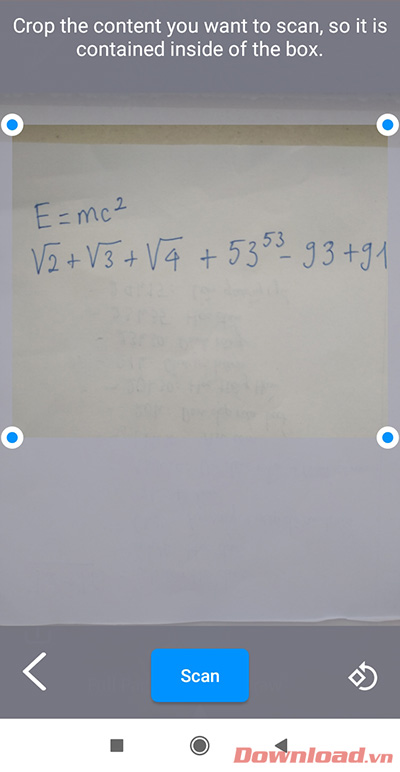 Crop the content you want to scan, so it is
contained inside of the box.
E=mc²
√2+√3+√4 + 53⁵³- 93+91
Scan
Download.vn